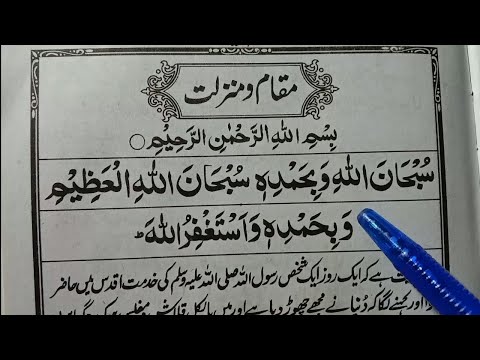 مقام و منزلت
بِسْمِ اللهِ الرَّحْمٰنِ الرَّحِيْمِ
سُبْحَانَ اللهِ وَبِحَمْدِهٖ سُبْحَانَ اللهِ الْعَظِيْمِ
وَبِحَمْدِهٖ وَاَسْتَغْفِرُ اللهَ
ہے کہ ایک روز ایک شخص رسول اللہ صلی اللہ علیہ وسلم کی خدمت اقدس میں حاضر
اور کہنے لگا کہ دُنیا نے مجھے چھوڑ دیا ہے اور میں بالکل